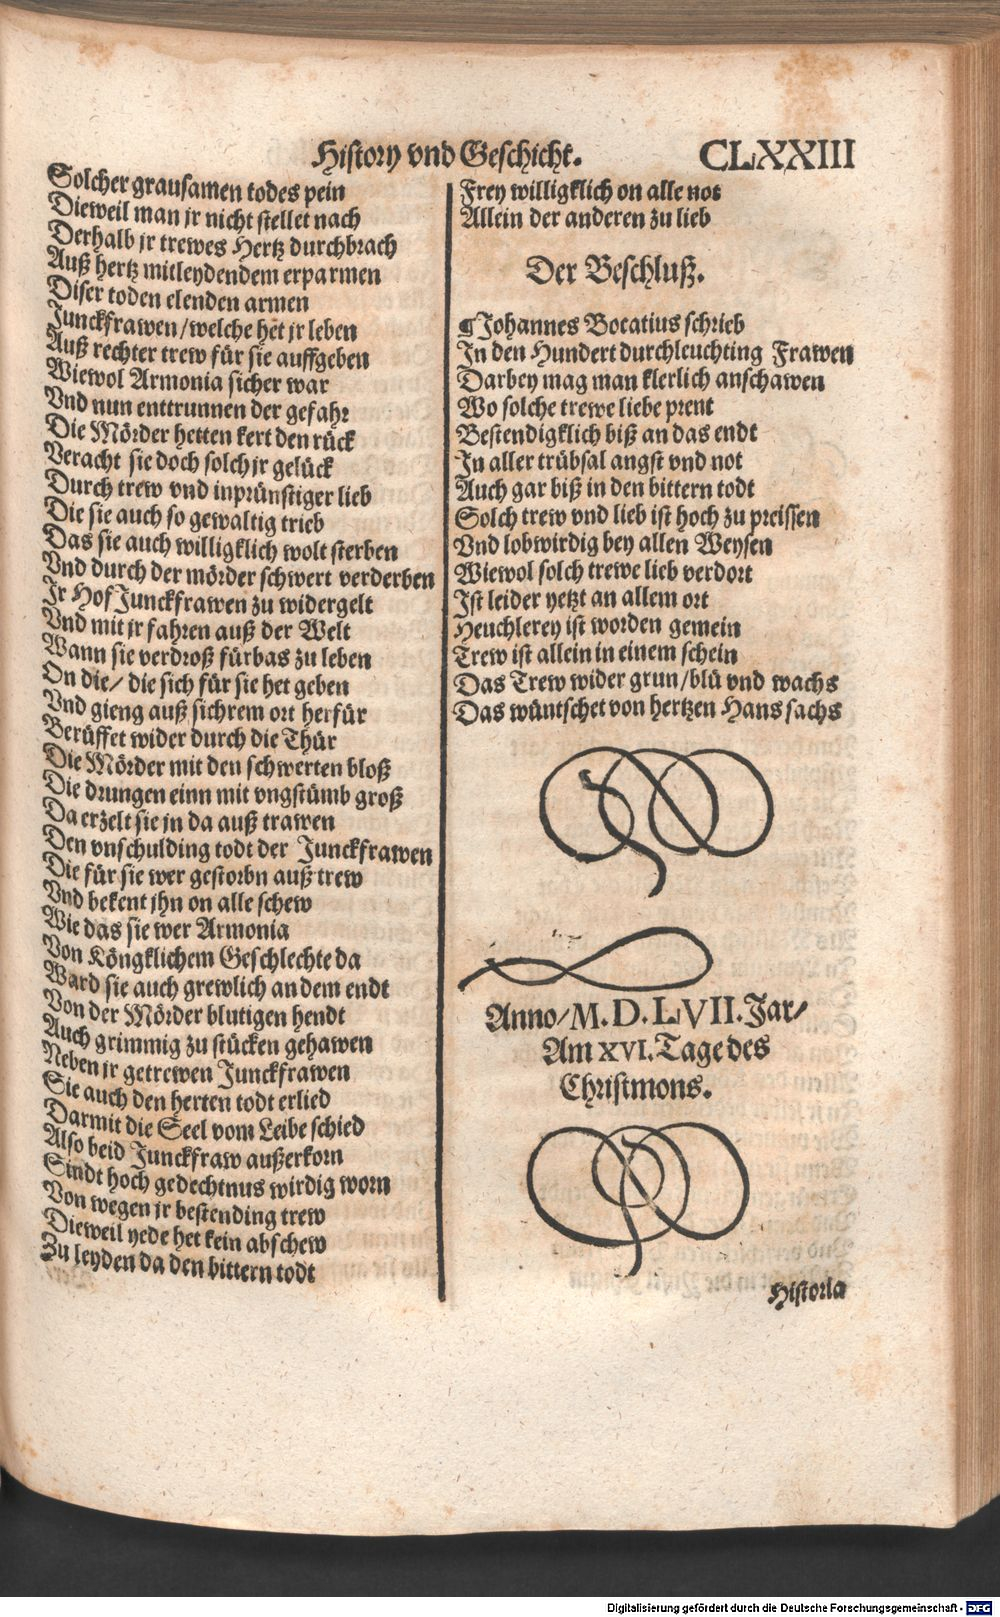 History vnd Geschicht. CLXXIII
Solcher grausamen todes pein
Dieweil man jr nicht stellet nach
Derhalb jr trewes Hertz durchbrach
Auß hertz mitleydendem erparmen
Diser toden elenden armen
Junckfrawen/welche het jr leben
Auß rechter trew für sie auffgeben
Wiewol Armonia sicher war
Vnd nun enttrunnen der gefahr
Die Mörder hetten kert den rück
Veracht sie doch solch jr gelück
Durch trew vnd inprünstiger lieb
Die sie auch so gewaltig trieb
Das sie auch willigklich wolt sterben
Vnd durch der mörder schwert verderben
Jr Hof Junckfrawen zu widergelt
Vnd mit jr fahren auß der Welt
Wann sie verdroß fürbas zu leben
On die/ die sich für sie het geben
Vnd gieng auß sichrem ort herfür
Berüffet wider durch die Thür
Die Mörder mit den schwerten bloß
Die drungen einn mit vngstümb groß
Da erzelt sie jn da auß trawen
Den vnschulding todt der Junckfrawen
Die für sie wer gestorbn auß trew
Vnd bekent jhn on alle schew
Wie das sie wer Armonia
Von Köngklichem Geschlechte da
Ward sie auch grewlich an dem endt
Von der Mörder blutigen hendt
Auch grimmig zu stücken gehawen
Neben jr getrewen Junckfrawen
Sie auch den herten todt erlied
Darmit die Seel vom Leibe schied
Also beid Junckfraw außerkorn
Sindt hoch gedechtnus wirdig worn
Von wegen jr bestending trew
Dieweil yede het kein abschew
Zu leyden da den bittern todt
Frey willigklich on alle not
Allein der anderen zu lieb
Der Beschluß.
¶Johannes Bocatius schrieb
In den Hundert durchleuchting Frawen
Darbey mag man klerlich anschawen
Wo solche trewe liebe prent
Bestendigklich biß an das endt
In aller trübsal angst vnd not
Auch gar biß in den bittern todt
Solch trew vnd lieb ist hoch zu preissen
Vnd lobwirdig bey allen Weysen
Wiewol solch trewe lieb verdort
Ist leider yetzt an allem ort
Heuchlerey ist worden gemein
Trew ist allein in einem schein
Das Trew wider grun/blü vnd wachs
Das wüntschet von hertzen Hans sachs
Anno/M.D.LVII.Jar/
Am XVI.Tage des
Christmons.
Historia
Digitalisierung gefördert durch die Deutsche Forschungsgemeinschaft - DFG